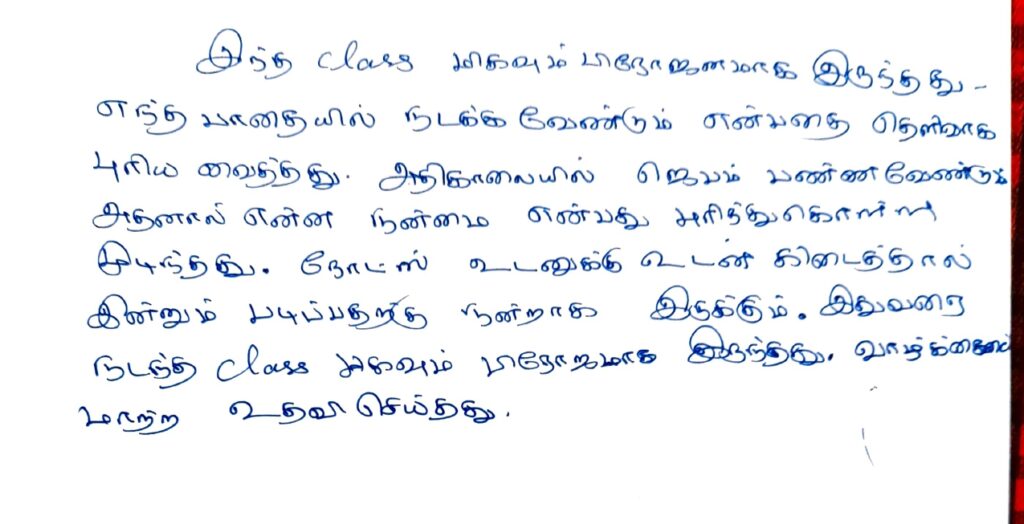 இந்த class மிகவும் பிரயோஜனமாக இருந்தது-
எந்த பாதையில் நடக்க வேண்டும் என்பதை தெளிவாக
புரிய வைத்தது. அதிகாலையில் ஜெபம் பண்ணவேண்டும்
அதனால் என்ன நன்மை என்பது அறிந்துகொள்ள
முடிந்தது. நோட்ஸ் உடனுக்கு உடன் கிடைத்தால்
இன்னும் படிப்பதற்கு நன்றாக இருக்கும். இதுவரை
நடந்த class மிகவும் பிரயோஜமாக இருந்தது. வாழ்க்கையை
மாற்ற உதவி செய்தது.